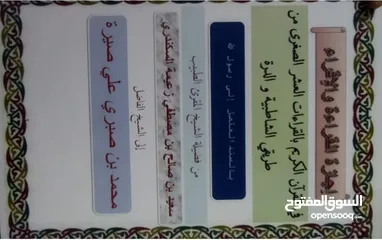 إجازة القراءة والإقراء
في القرآن الكريم بالقراءات العشر الصغرى من
طريقي الشاطبية و الدرة
بالسند المتصل إلى رسول الله ﷺ
من فضيلة الشيخ المقرئ الطبيب
سعيد بن صالح بن مصطفى زعيمة السكندري
إلى الشيخ الفاضل
محمد بن صبري علي صبرة
السوق المفتوح
opensooq.com